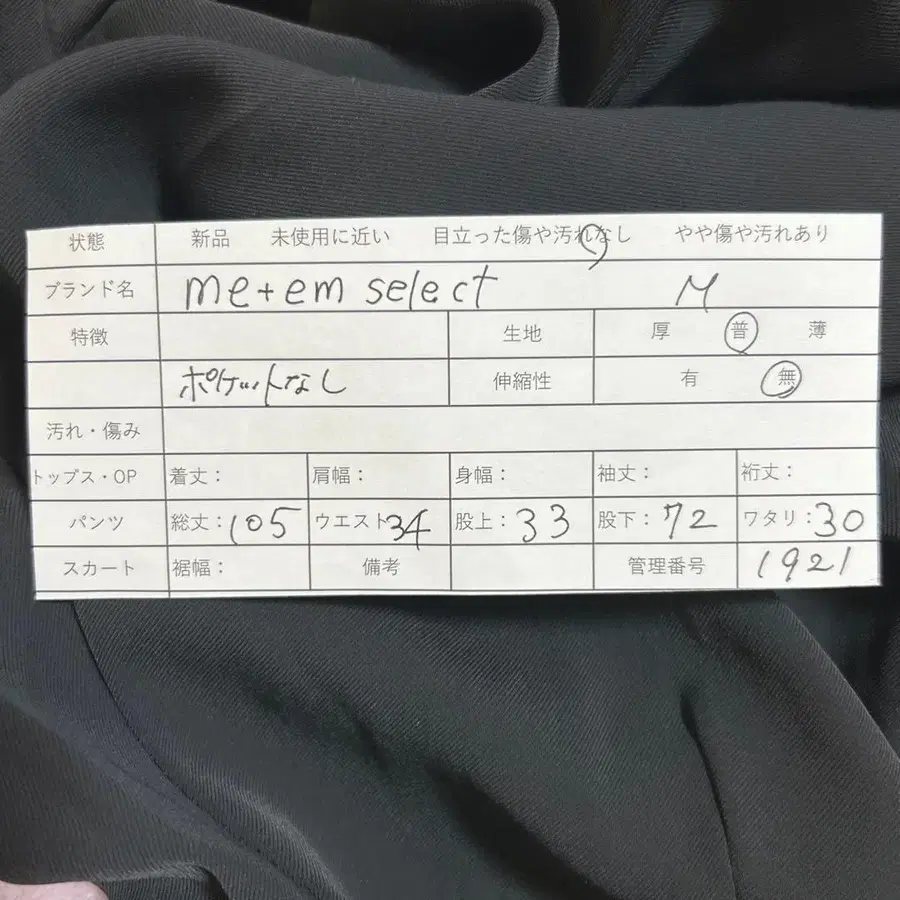 状態 新品 未使用に近い 目立った傷や汚れなし やや傷や汚れあり
ブランド名 me+em select M
特徴 生地 厚 普 薄
ポケットなし 伸縮性 有 無
汚れ・傷み
トップス・OP 着丈： 肩幅： 身幅： 袖丈： 裄丈：
パンツ 総丈：105 ウエスト34 股上：33 股下：72 ワタリ：30
スカート 裾幅： 備考 管理番号 1921